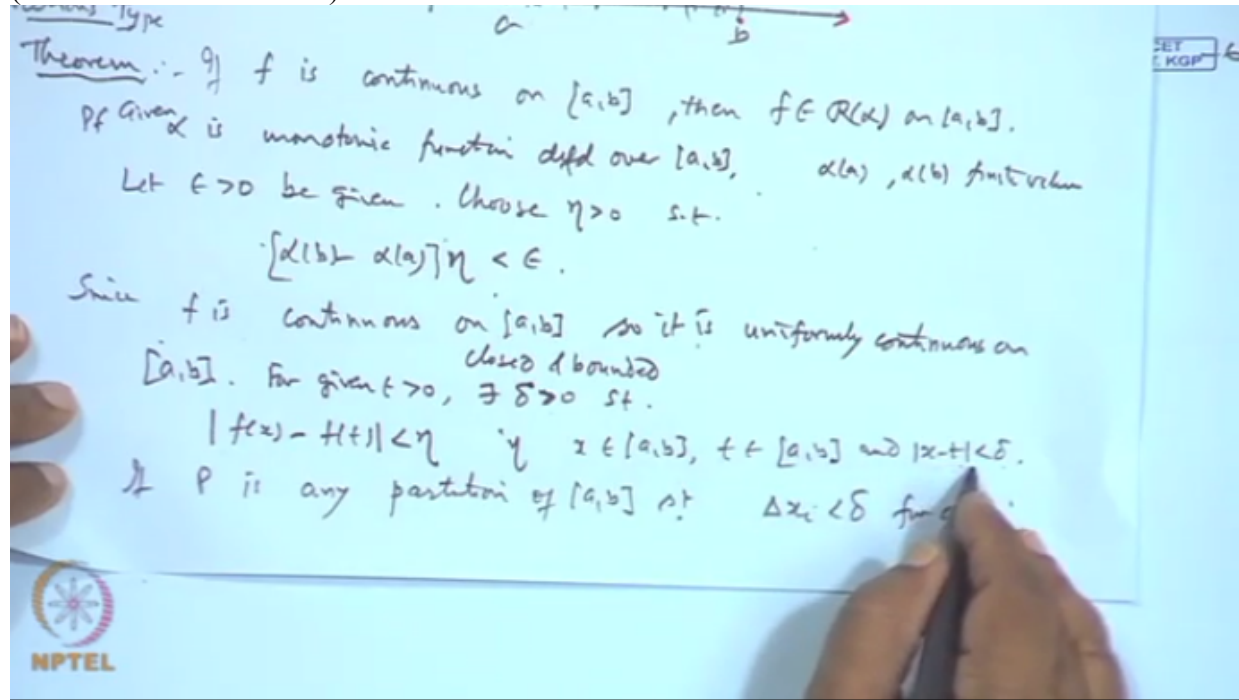 Type
a
b
CET
KGP
Theorem :- If f is continuous on [a,b], then f ∈ R(α) on [a,b].
Pf Given α is monotonic function defd over [a,b], α(a), α(b) finite value
Let ε >0 be given. Choose η>0 s.t.
[α(b) - α(a)]η < ε.
Since f is continuous on [a,b] so it is uniformly continuous on
closed & bounded
[a,b]. For given ε >0, ∃ δ>0 st.
|f(x) - f(t)| < η if x ∈ [a,b], t ∈ [a,b] and |x-t| < δ.
If P is any partition of [a,b] st Δxi < δ
NPTEL